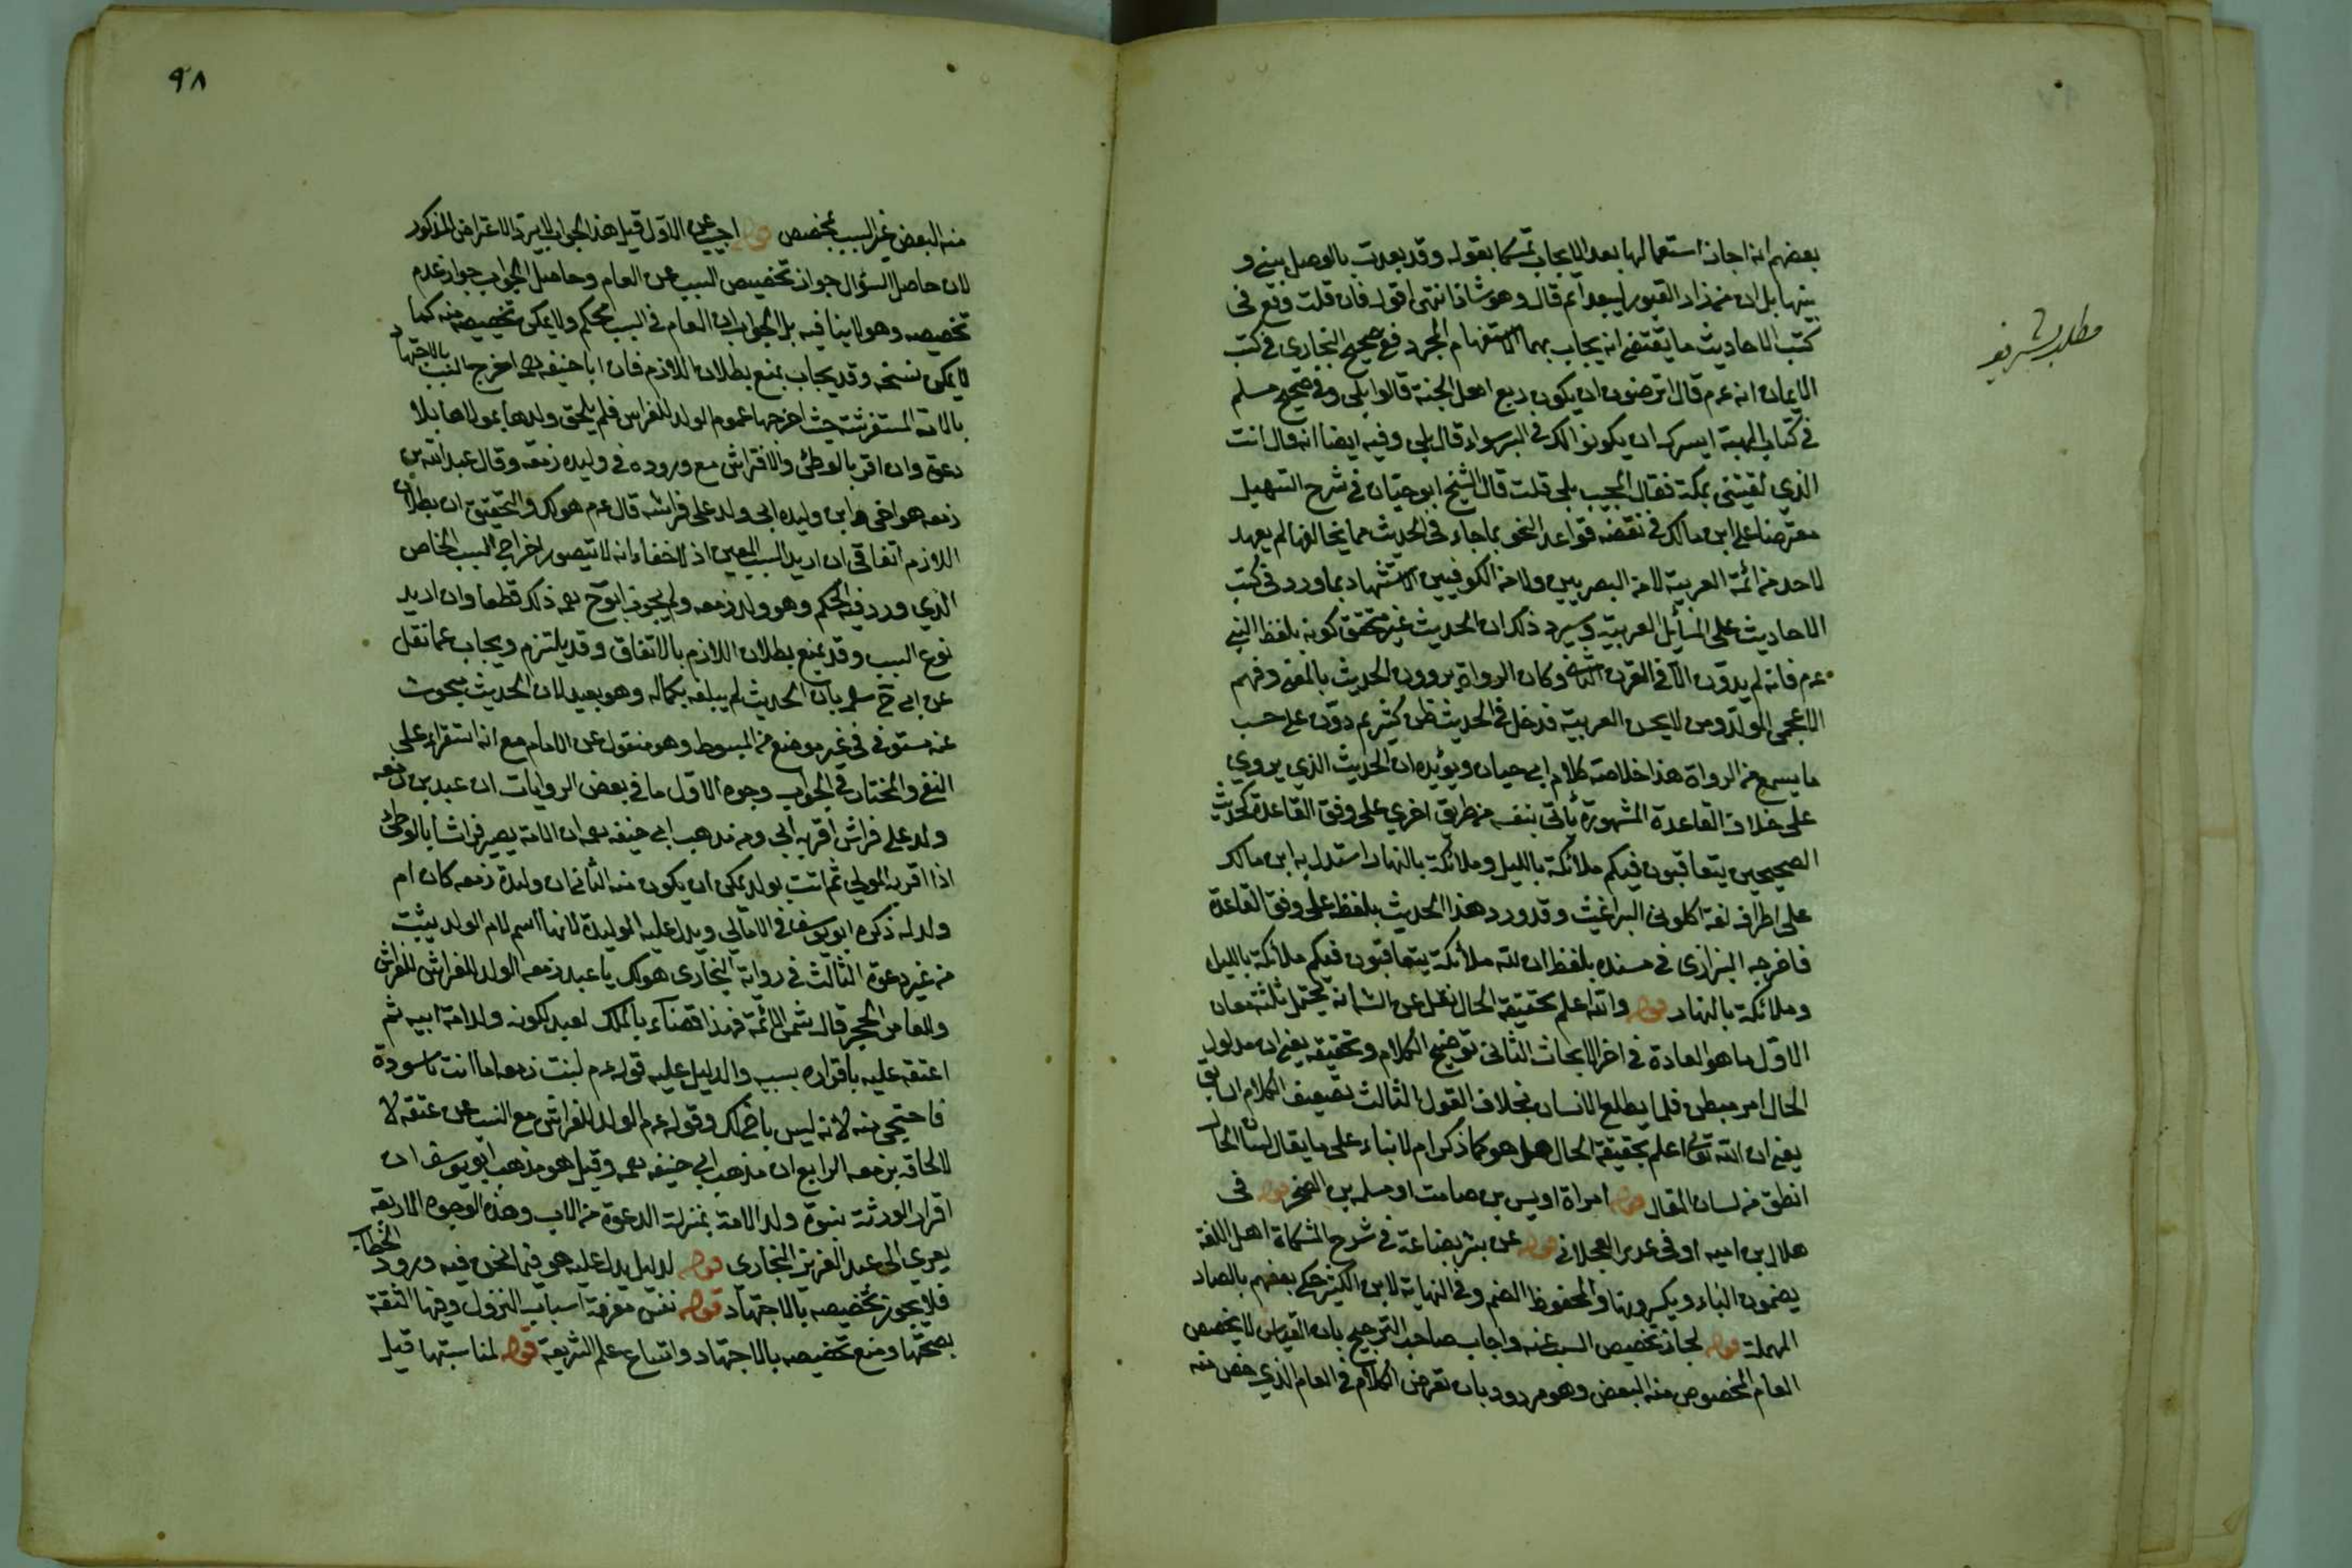 بعضهم انه اجاز استعمالها بعد الايجاب تمسكا بقوله وقد بعدت بالوصل بيني و
بينها بل ان من زار القبور ليبعدا ثم قال وهو شاذ انتهى اقول فان قلت وقع في
كتب الاحاديث ما يقتضي انه يجاب بها الاستفهام المجرد ففي صحيح البخاري في كتب
الايمان انه عم قال اترضون ان يكون ربع اهل الجنة قالوا بلى وفي صحيح مسلم
في كتاب الهبة ايسرك ان يكونوا لك في البر سواء قال بلى وفيه ايضا انه قال انت
الذي لقيتني بمكة فقال المجيب بلى قلت قال الشيخ ابو حيان في شرح التسهيل
معترضا على ابن مالك في نقضه قواعد النحو بما جاء في الحديث مما يخالفها لم يعهد
لاحد من ائمة العربية لا من البصريين ولا من الكوفيين الاستشهاد بما ورد في كتب
الاحاديث على المسائل العربية وسيره ذلك ان الحديث غير متحقق كونه بلفظ النبي
عم فانه لم يدون الا في القرن الثاني وكان الرواة يروون الحديث بالمعنى وفهم
الاعجمي المولد ومن لا يحسن العربية فدخل في الحديث ظن كثير ثم دون على حسب
ما يسمع من الرواة هذا خلاصة كلام ابي حيان ويؤيده ان الحديث الذي يروي
على خلاف القاعدة المشهورة يأتي بنفسه من طريق اخري على وفق القاعدة كحديث
الصحيحين يتعاقبون فيكم ملائكة بالليل وملائكة بالنهار استدل به ابن مالك
على اطراف لغة اكلوني البراغيث وقد ورد هذا الحديث بلفظ على وفق القاعدة
فاخرجه البزاري في مسنده بلفظ ان لله ملائكة يتعاقبون فيكم ملائكة بالليل
وملائكة بالنهار قوله والله اعلم بحقيقة الحال نقل عن الشانة يحتمل ثلثة معان
الاول ما هو العادة في اخر الابحاث الثاني توضيح الكلام وتحقيقه يعني ان مدلول
الحال امر مبطن فلما يطلع الانسان بخلاف القول الثالث تضعيف الكلام السابق
يعني ان الله تع اعلم بحقيقة الحال هل هو كما ذكر ام لا بناء على ما يقال لسان الحال
انطق من لسان المقال قوله امراة اويس بن صامت او سلمه بن الصخر قوله في
هلال بن اميه او في عدير العجلاني قوله عن بئر بضاعة في شرح المشكاة اهل اللغة
يضمون الباء ويكسرونها والمحفوظ الضم وفي النهاية لابن الكثير حكى بعضهم بالصاد
المهملة قوله لجاز تخصيص السبب عنه واجاب صاحب الترجيح بان القياس لا يخصص
العام المخصوص منه البعض وهو مردود بان تعرض الكلام في العام الذي خص منه
مطلب شريف
٩٨
منه البعض غير السبب بمخصص قوله اجيب عن الاول قيل هذا الجواب لا يرد الاعتراض المذكور
لان حاصل السؤال جواز تخصيص السبب عن العام وحاصل الجواب جواز عدم
تخصيصه وهو لا ينافيه بل الجواب ان العام في السبب محكم ولا يمكن تخصيصه منه كما
لا يمكن نسخه وقد يجاب بمنع بطلان اللازم فان ابا حنيفه اخرج السبب بالاجتهاد
بالامة المستفرشة حيث اخرجها عموم الولد للفراش فلم يلحق ولدها بمولاها بلا
دعوة وان اقر بالوطئ والافتراش مع وروده في وليدة زمعه وقال عبد الله بن
زمعه هو اخي وابن وليده ابي ولد على فراشه قال عم هو لك والتحقيق ان بطلان
اللازم اتفاقي ان اريد السبب المعين اذ لا خفاء انه لا يتصور اخراج السبب الخاص
الذي ورد فيه الحكم وهو ولد زمعه ولم يجوز ابو ح رحمه ذلك قطعا وان اريد
نوع السبب وقد يمنع بطلان اللازم بالاتفاق وقد يلتزم ويجاب عما نقل
عن ابي ح بان الحديث لم يبلغه بكماله وهو بعيد لان الحديث مبحوث
عنه مستوفى في غير موضع من المبسوط وهو منقول عن الامام مع انه استقرار على
النفي والمختار في الجواب وجوه الاول ما في بعض الروايات ان عبد بن زمعه
ولد على فراش اقر به ابي ومن مذهب ابي حنيفه رحمه ان الامة يصير فراشا بالوطئ
اذا اقر به المولي ثم اتت بولد يمكن ان يكون منه الثاني ان وليدة زمعه كان ام
ولد له ذكره ابو يوسف في الامالي ويدل عليه الوليدة لانها اسم لام الولد يثبت
من غير دعوة الثالث في رواية البخاري هو لك يا عبد زمعه الولد للفراش للفراش
وللعاهر الحجر قال شمس الائمة فهذا قضاء بالملك لعبد لكونه ولد امة ابيه ثم
اعتقه عليه باقراره بسببه والدليل عليه قوله عم لبنت زمعه اما انت يا سودة
فاحتجبي منه لانه ليس باخ لك وقوله عم الولد للفراش مع السبب عن عتقه لا
لالحاقه بزمعه الرابع ان مذهب ابي حنيفه رحمه وقيل هو مذهب ابو يوسف ان
اقرار الورثة بنبوة ولد الامة بمنزلة الدعوة من الاب وهذه الوجوه الاربعة
يعزي الى عبد العزيز البخاري قوله لدليل يدل عليه هو فيما نحن فيه ورود الخطاب
فلا يجوز تخصيصه بالاجتهاد قوله نفس معرفة اسباب النزول وفيها الثقة
بصحتها ومنع تخصيصه بالاجتهاد واتساع علم الشريعة قوله لمناسبتها قيل